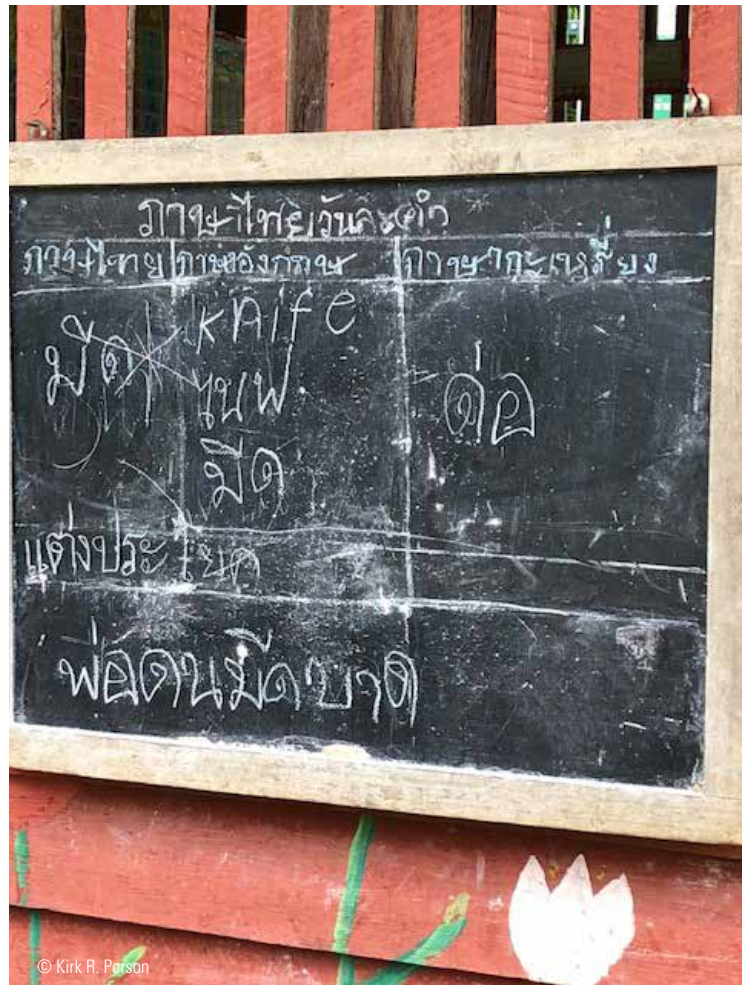 ภาษาไทยวันละคำ
ภาษาไทย ภาษาอังกฤษ ภาษากะเหรี่ยง
มีด knife ด่อ
ไนฟ
มีด
แต่งประโยค
พ่อดนมีดบาด
© Kirk R. Person